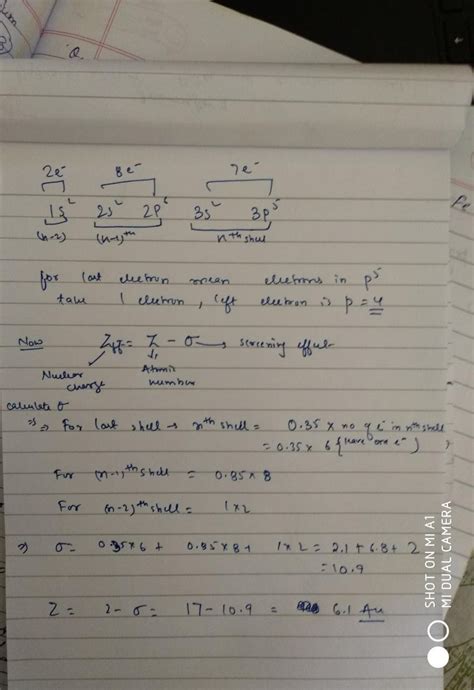 2e⁻ 8e⁻ 7e⁻
1s² 2s² 2p⁶ 3s² 3p⁵
(n-2) (n-1)ᵗʰ nᵗʰ shell
for last electron mean electrons in p⁵
take 1 electron, left electron is p = 4
Now Zeff = Z - σ → screening effect
Nuclear charge Atomic number
calculate σ
⇒ For last shell → nᵗʰ shell = 0.35 × no of e⁻ in nᵗʰ shell
= 0.35 × 6 {leave one e⁻}
For (n-1)ᵗʰ shell = 0.85 × 8
For (n-2)ᵗʰ shell = 1×2
⇒ σ = 0.35×6 + 0.85×8+ 1×2 = 2.1 + 6.8 + 2
= 10.9
Z = Z - σ = 17 - 10.9 = 6.1 Au
SHOT ON MI A1
MI DUAL CAMERA